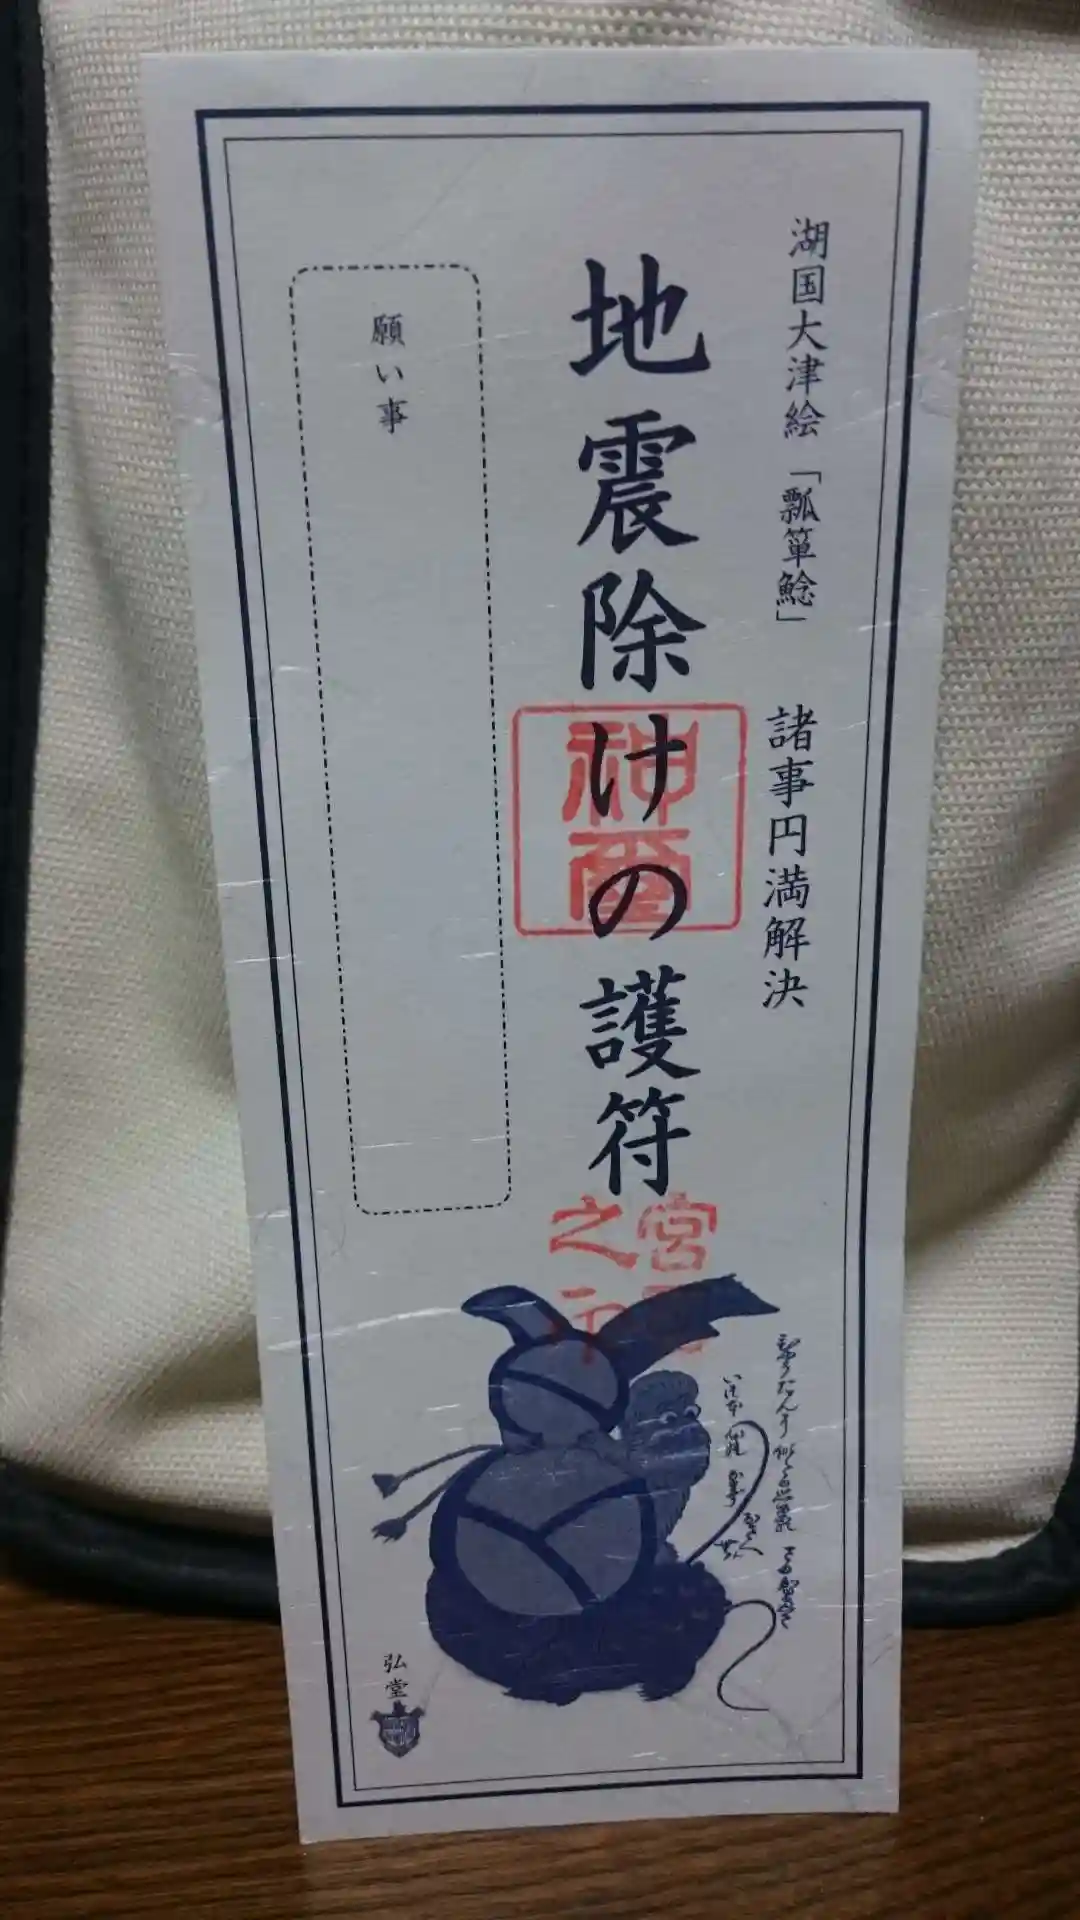 湖国大津絵「瓢箪鯰」 諸事円満解決
地震除けの護符
神璽
宮司
之印
願い事
弘堂